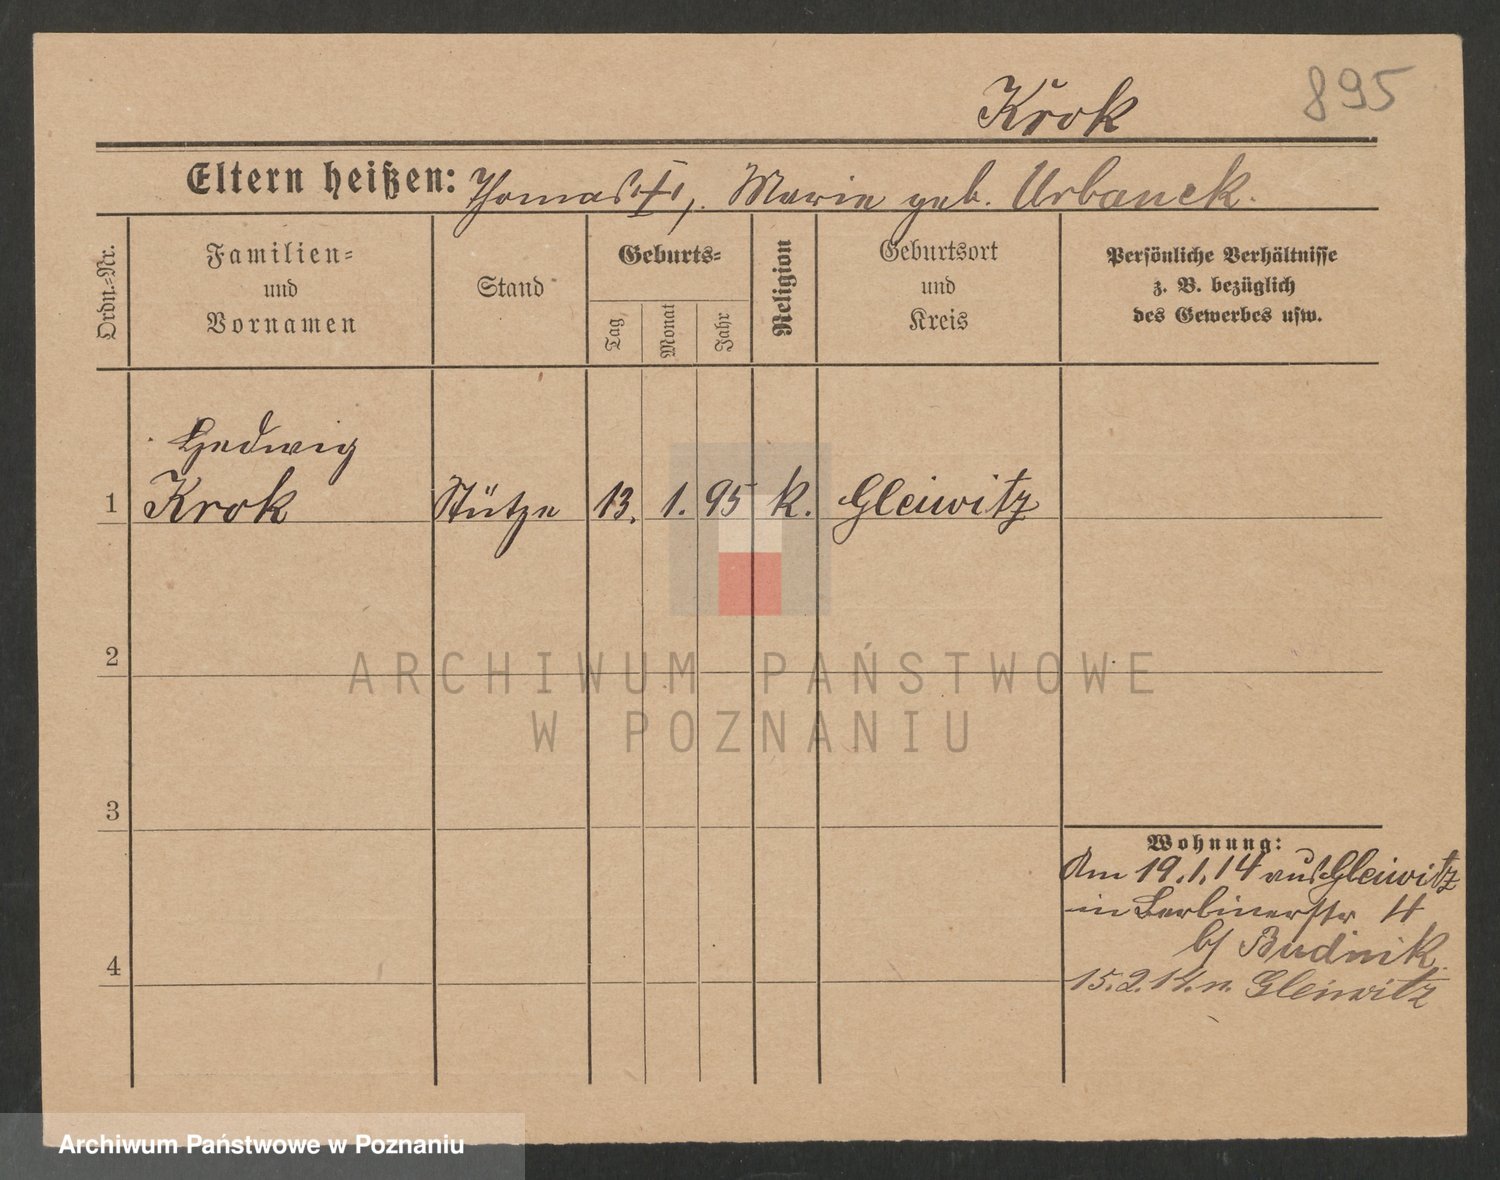 Krok
895
Eltern heißen: Thomas †, Marie geb. Urbanek.
Ordn.-Nr.
Familien-
und
Vornamen
Stand
Geburts-
Tag
Monat
Jahr
Religion
Geburtsort
und
Kreis
Persönliche Verhältnisse
z. B. bezüglich
des Gewerbes usw.
Hedwig
1 Krok Stütze 13. 1. 95 k. Gleiwitz
2
ARCHIWUM PAŃSTWOWE
W POZNANIU
3
Wohnung:
Am 19.1.14 aus Gleiwitz
in Berlinerstr 4
b/ Budnik
4
15.2.14. n. Gleiwitz
Archiwum Państwowe w Poznaniu